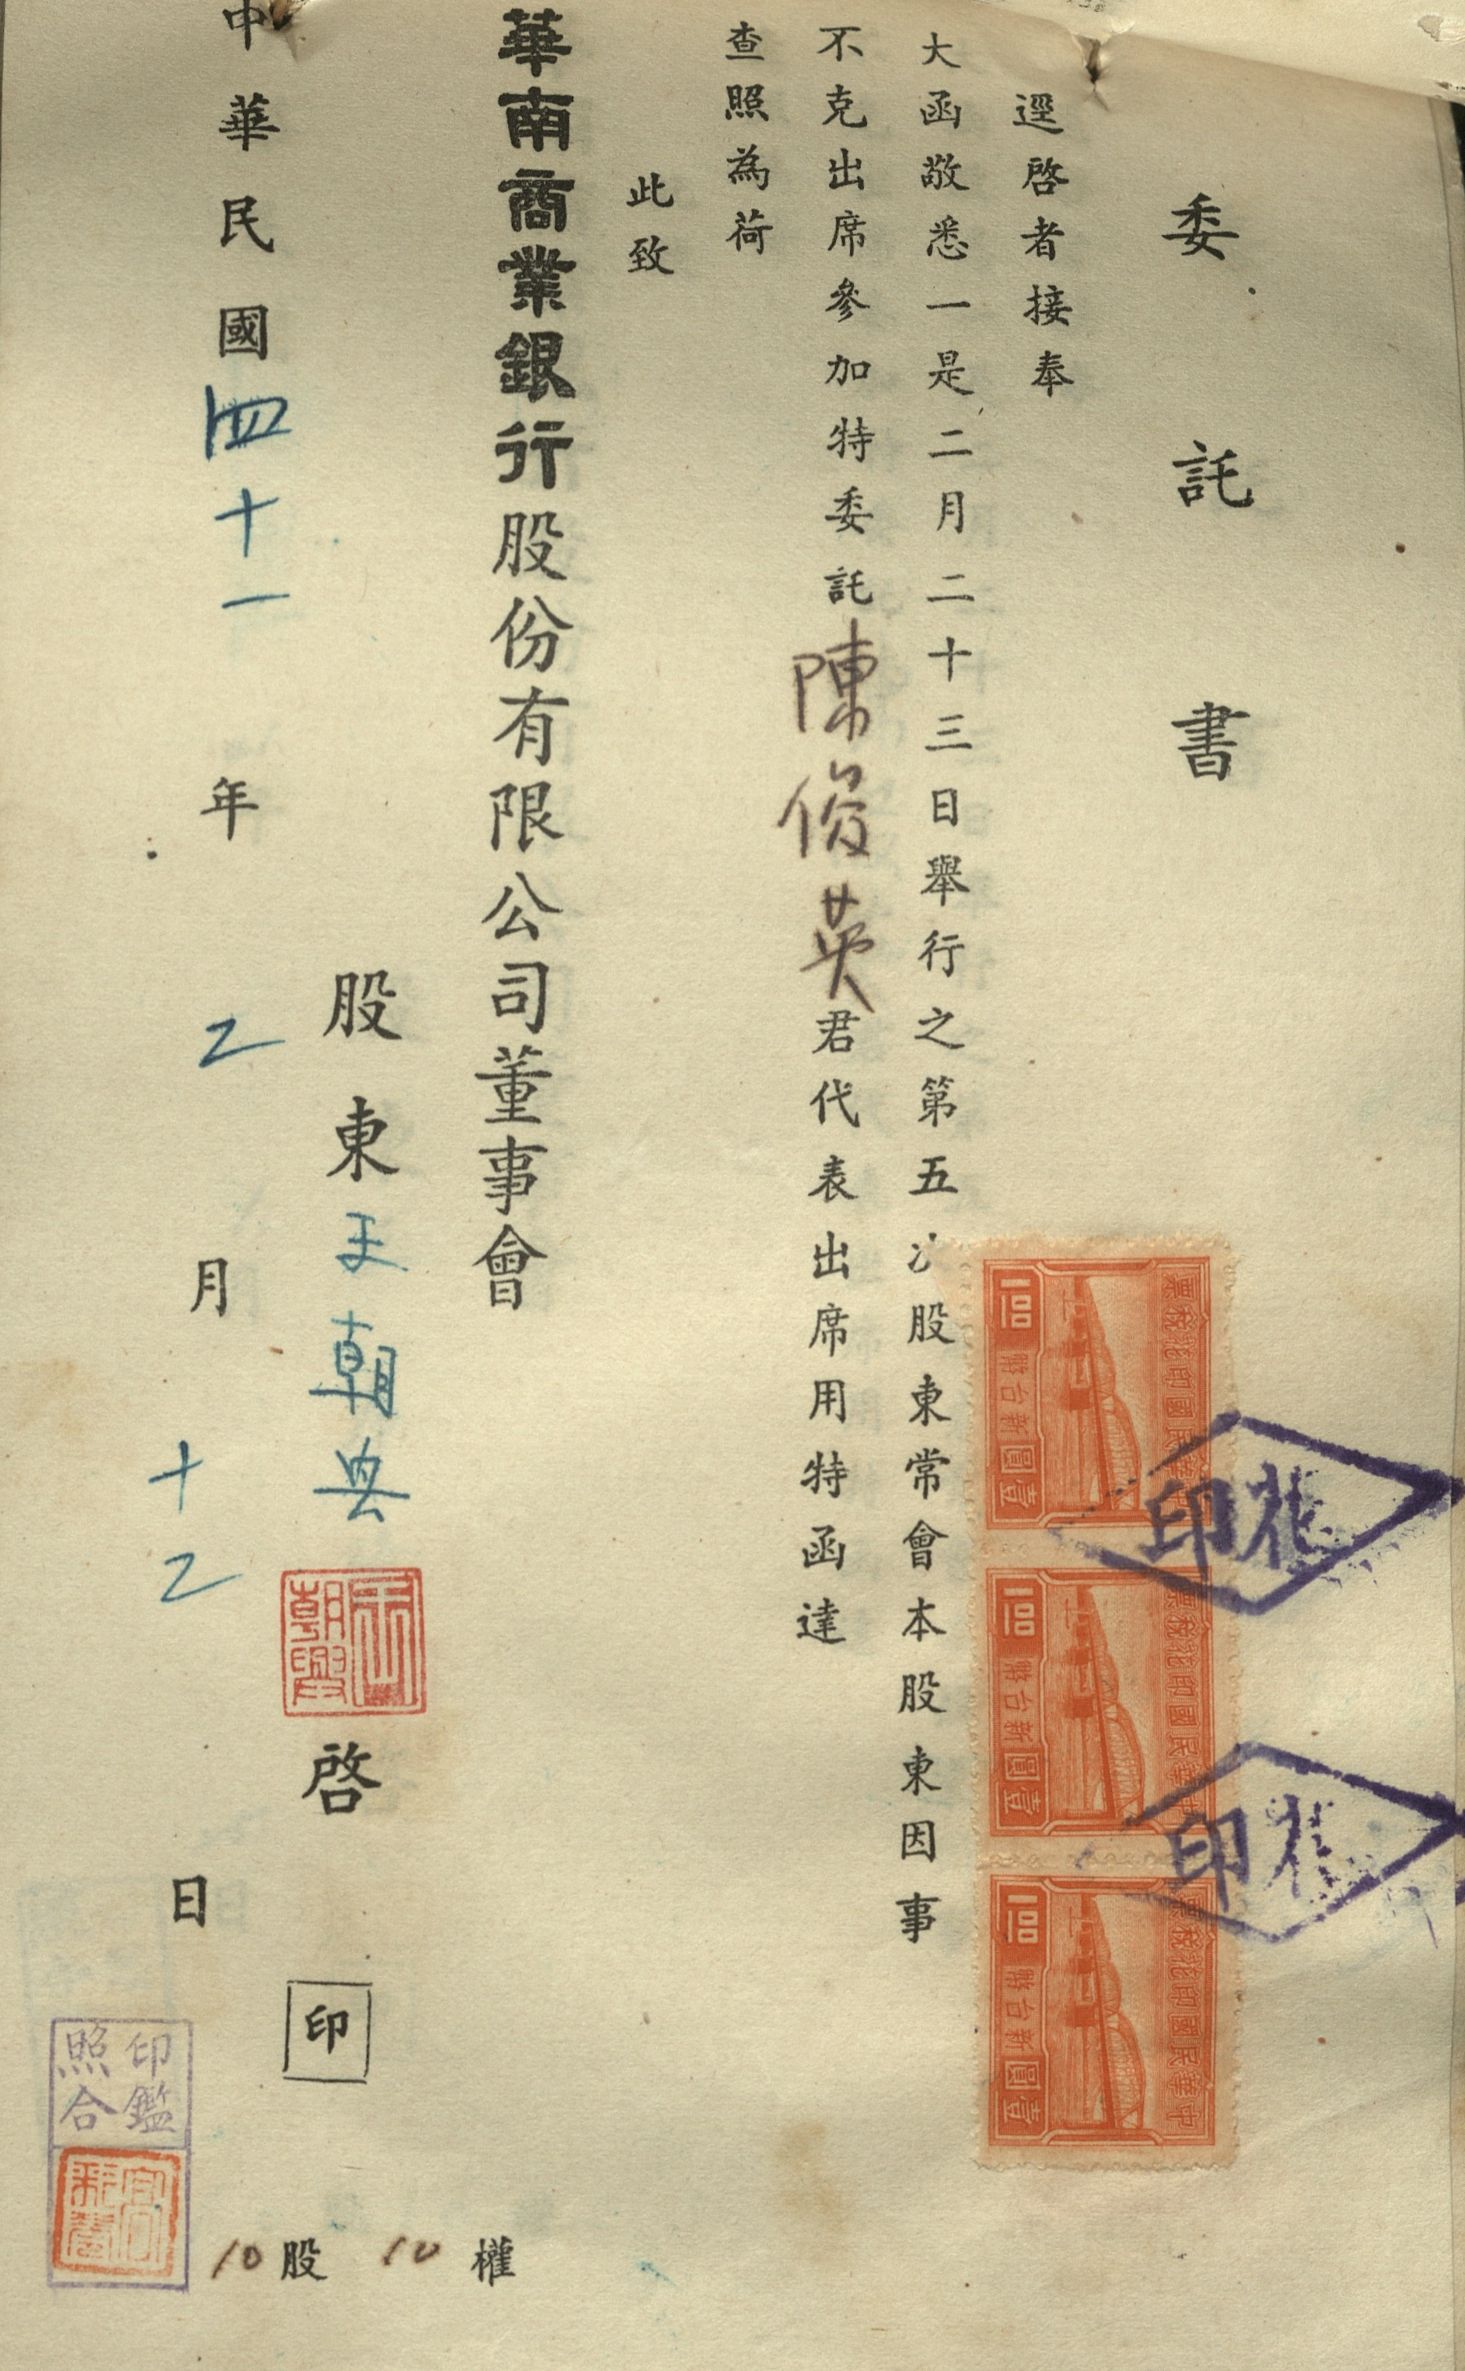 委託書
逕啓者接奉
大函敬悉一是二月二十三日舉行之第五次股東常會本股東因事
不克出席參加特委託陳俊英君代表出席用特函達
查照為荷
此致
華南商業銀行股份有限公司董事會
股東王朝興啓
印
中華民國四十一年乙月十乙日
10股 10權
中華民國印花稅票
新台幣壹圓
1.00
中華民國印花稅票
新台幣壹圓
1.00
中華民國印花稅票
新台幣壹圓
1.00
印花
印花
王朝興
印鑑
照合